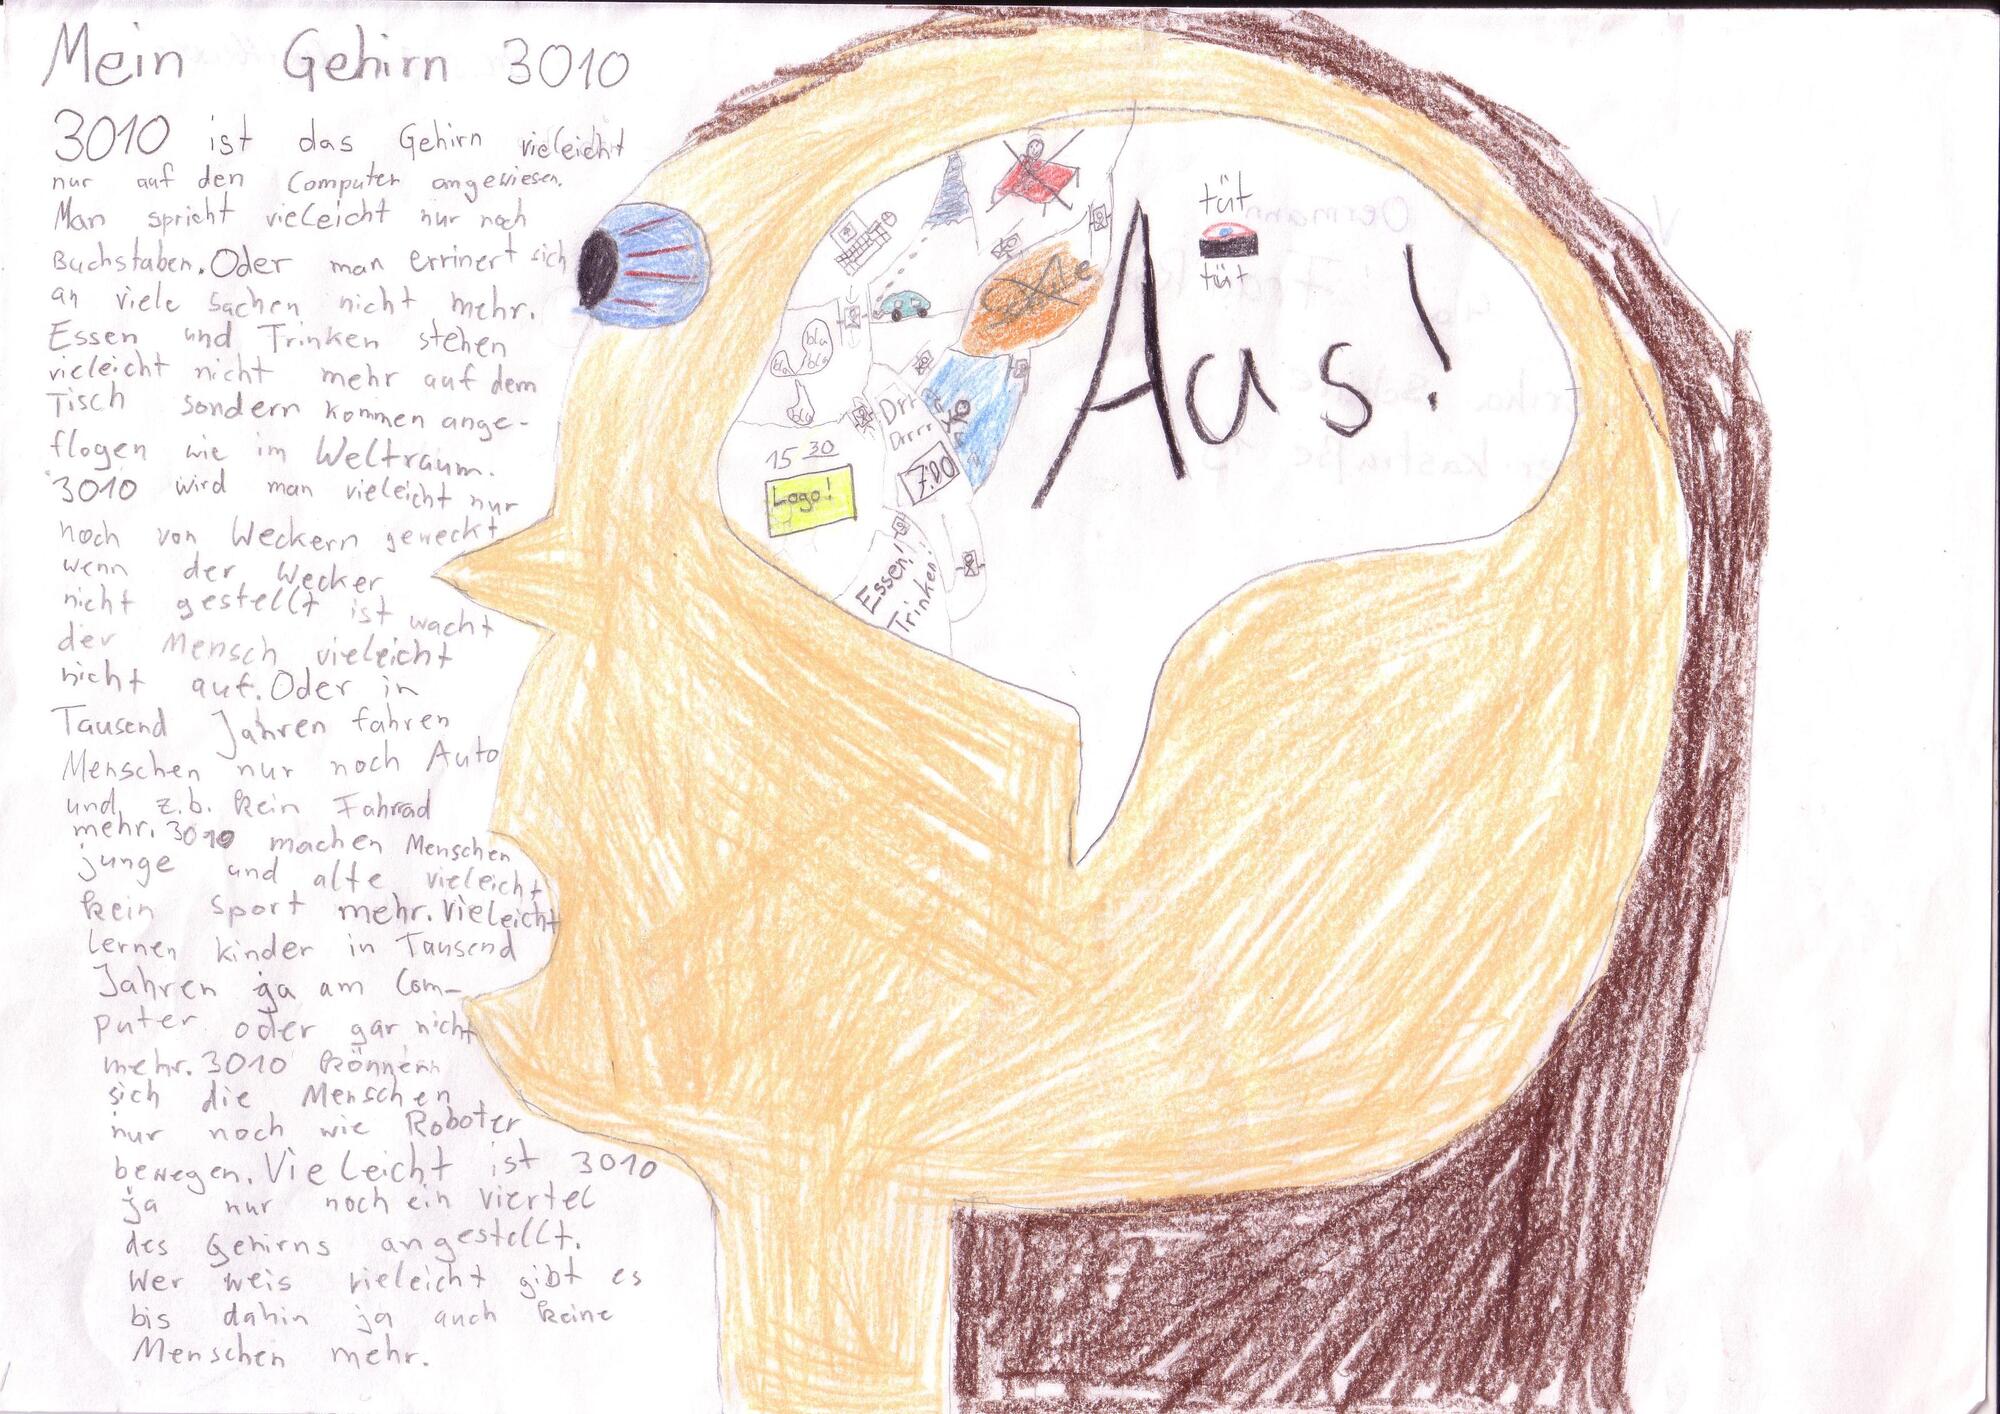 Mein Gehirn 3010
3010 ist das Gehirn vieleicht
nur auf den Computer angewiesen.
Man spricht vieleicht nur noch
Buchstaben. Oder man errinert sich
an viele sachen nicht mehr.
Essen und Trinken stehen
vieleicht nicht mehr auf dem
Tisch sondern kommen ange-
flogen wie im Weltraum.
3010 wird man vieleicht nur
noch von Weckern geweckt
wenn der Wecker
nicht gestellt ist wacht
der Mensch vieleicht
nicht auf. Oder in
Tausend Jahren fahren
Menschen nur noch Auto
und z.b. kein Fahrrad
mehr. 3010 machen Menschen
junge und alte vieleicht
kein sport mehr. Vieleicht
lernen kinder in Tausend
Jahren ja am Com-
puter oder gar nicht
mehr. 3010 können
sich die Menschen
nur noch wie Roboter
bewegen. Vieleicht ist 3010
ja nur noch ein viertel
des Gehirns angestellt.
Wer weis vieleicht gibt es
bis dahin ja auch keine
Menschen mehr.
tüt
tüt
Aus!
Schule
bla
bla
bla
bla
Drrr
Drrrr
7:00
15 30
Logo!
Essen!
Trinken!